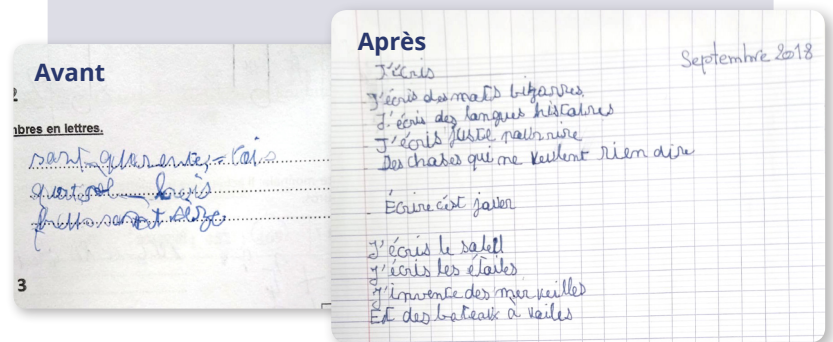 Avant
mbres en lettres.
3
Après
Septembre 2018
J'écris
J'écris des mots bizarres
J'écris des langues histoires
J'écris juste pour rire
Des choses qui ne veulent rien dire
Écrire c'est jouer
J'écris le soleil
J'écris les étoiles
J'invente des merveilles
Et des bateaux à voiles